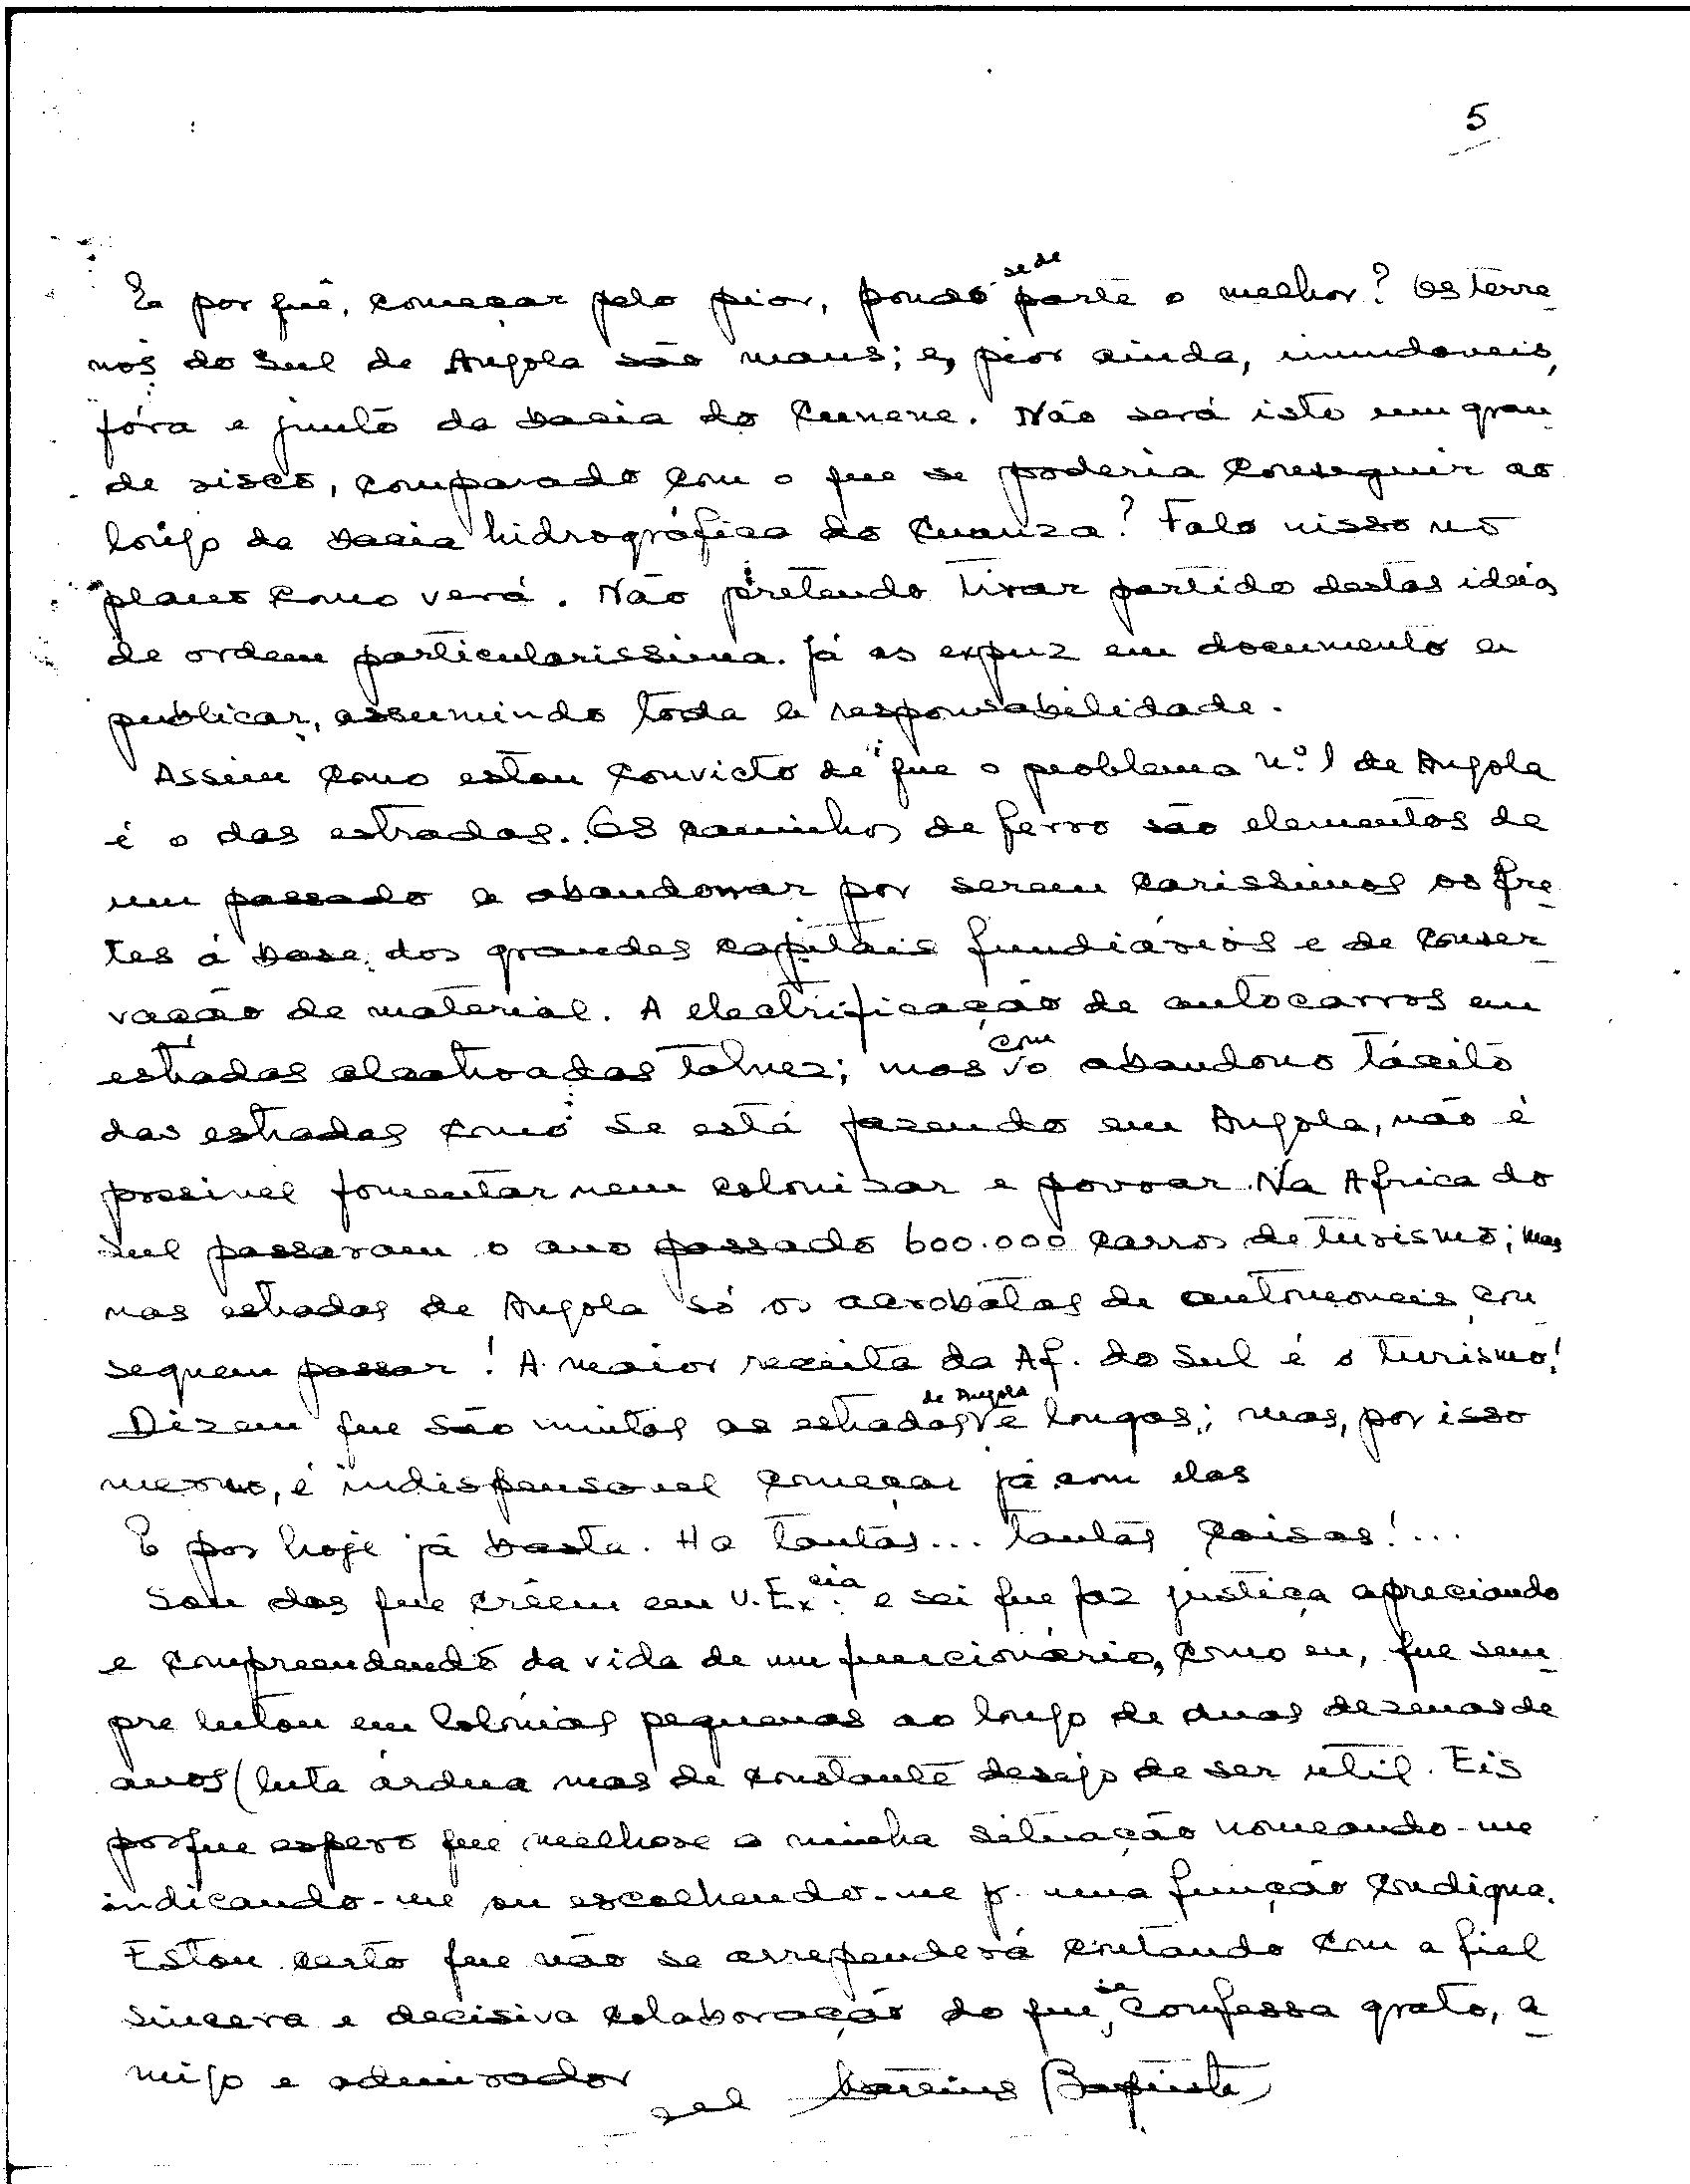 5
E por quê, começar pelo pior, pondo se de parte o melhor? Os terre
nos do Sul de Angola são maus; e, pior ainda, inundaveis,
fóra e junto da bacia do Cunene. Não será isto um gran
de risco, comparado com o que se poderia conseguir ao
longo da bacia hidrográfica do Cuanza? Falo nisso no
plano como verá. Não pretendo tirar partido destas ideias
de ordem particularissima. Já as expuz em documento a
publicar, assumindo toda a responsabilidade.
Assim como estou convicto de que o problema n.º 1 de Angola
é o das estradas. Os caminhos de ferro são elementos de
um passado a abandonar por serem carissimos os fre
tes á base dos grandes capitais fundiários e de conser
vação de material. A electrificação de autocarros em
estradas alcatroadas talvez; mas com o abandono tácito
das estradas como se está fazendo em Angola, não é
possivel fomentar nem colonizar e povoar. Na Africa do
Sul passaram o ano passado 600.000 carros de turismo; mas
nas estradas de Angola só os acrobatas de automoveis con
seguem passar! A maior receita da Af. do Sul é o turismo!
Dizem que são muitas as estradas de Angola e longas; mas, por isso
mesmo, é indispensavel começar já com elas
E por hoje já basta. Ha tantas... tantas coisas!...
Sou dos que crêem em V. Ex.cia e sei que faz justiça apreciando
e compreendendo da vida de um funcionário, como eu, que sem
pre lutou em Colónias pequenas ao longo de duas dezenas de
anos (luta árdua mas de constante desejo de ser util. Eis
porque espero que melhore a minha situação nomeando-me
indicando-me ou escolhendo-me p. uma função condigna.
Estou certo que não se arrependerá contando com a fiel
sincera e decisiva colaboração do que se confessa grato, a
migo e admirador
Baptista